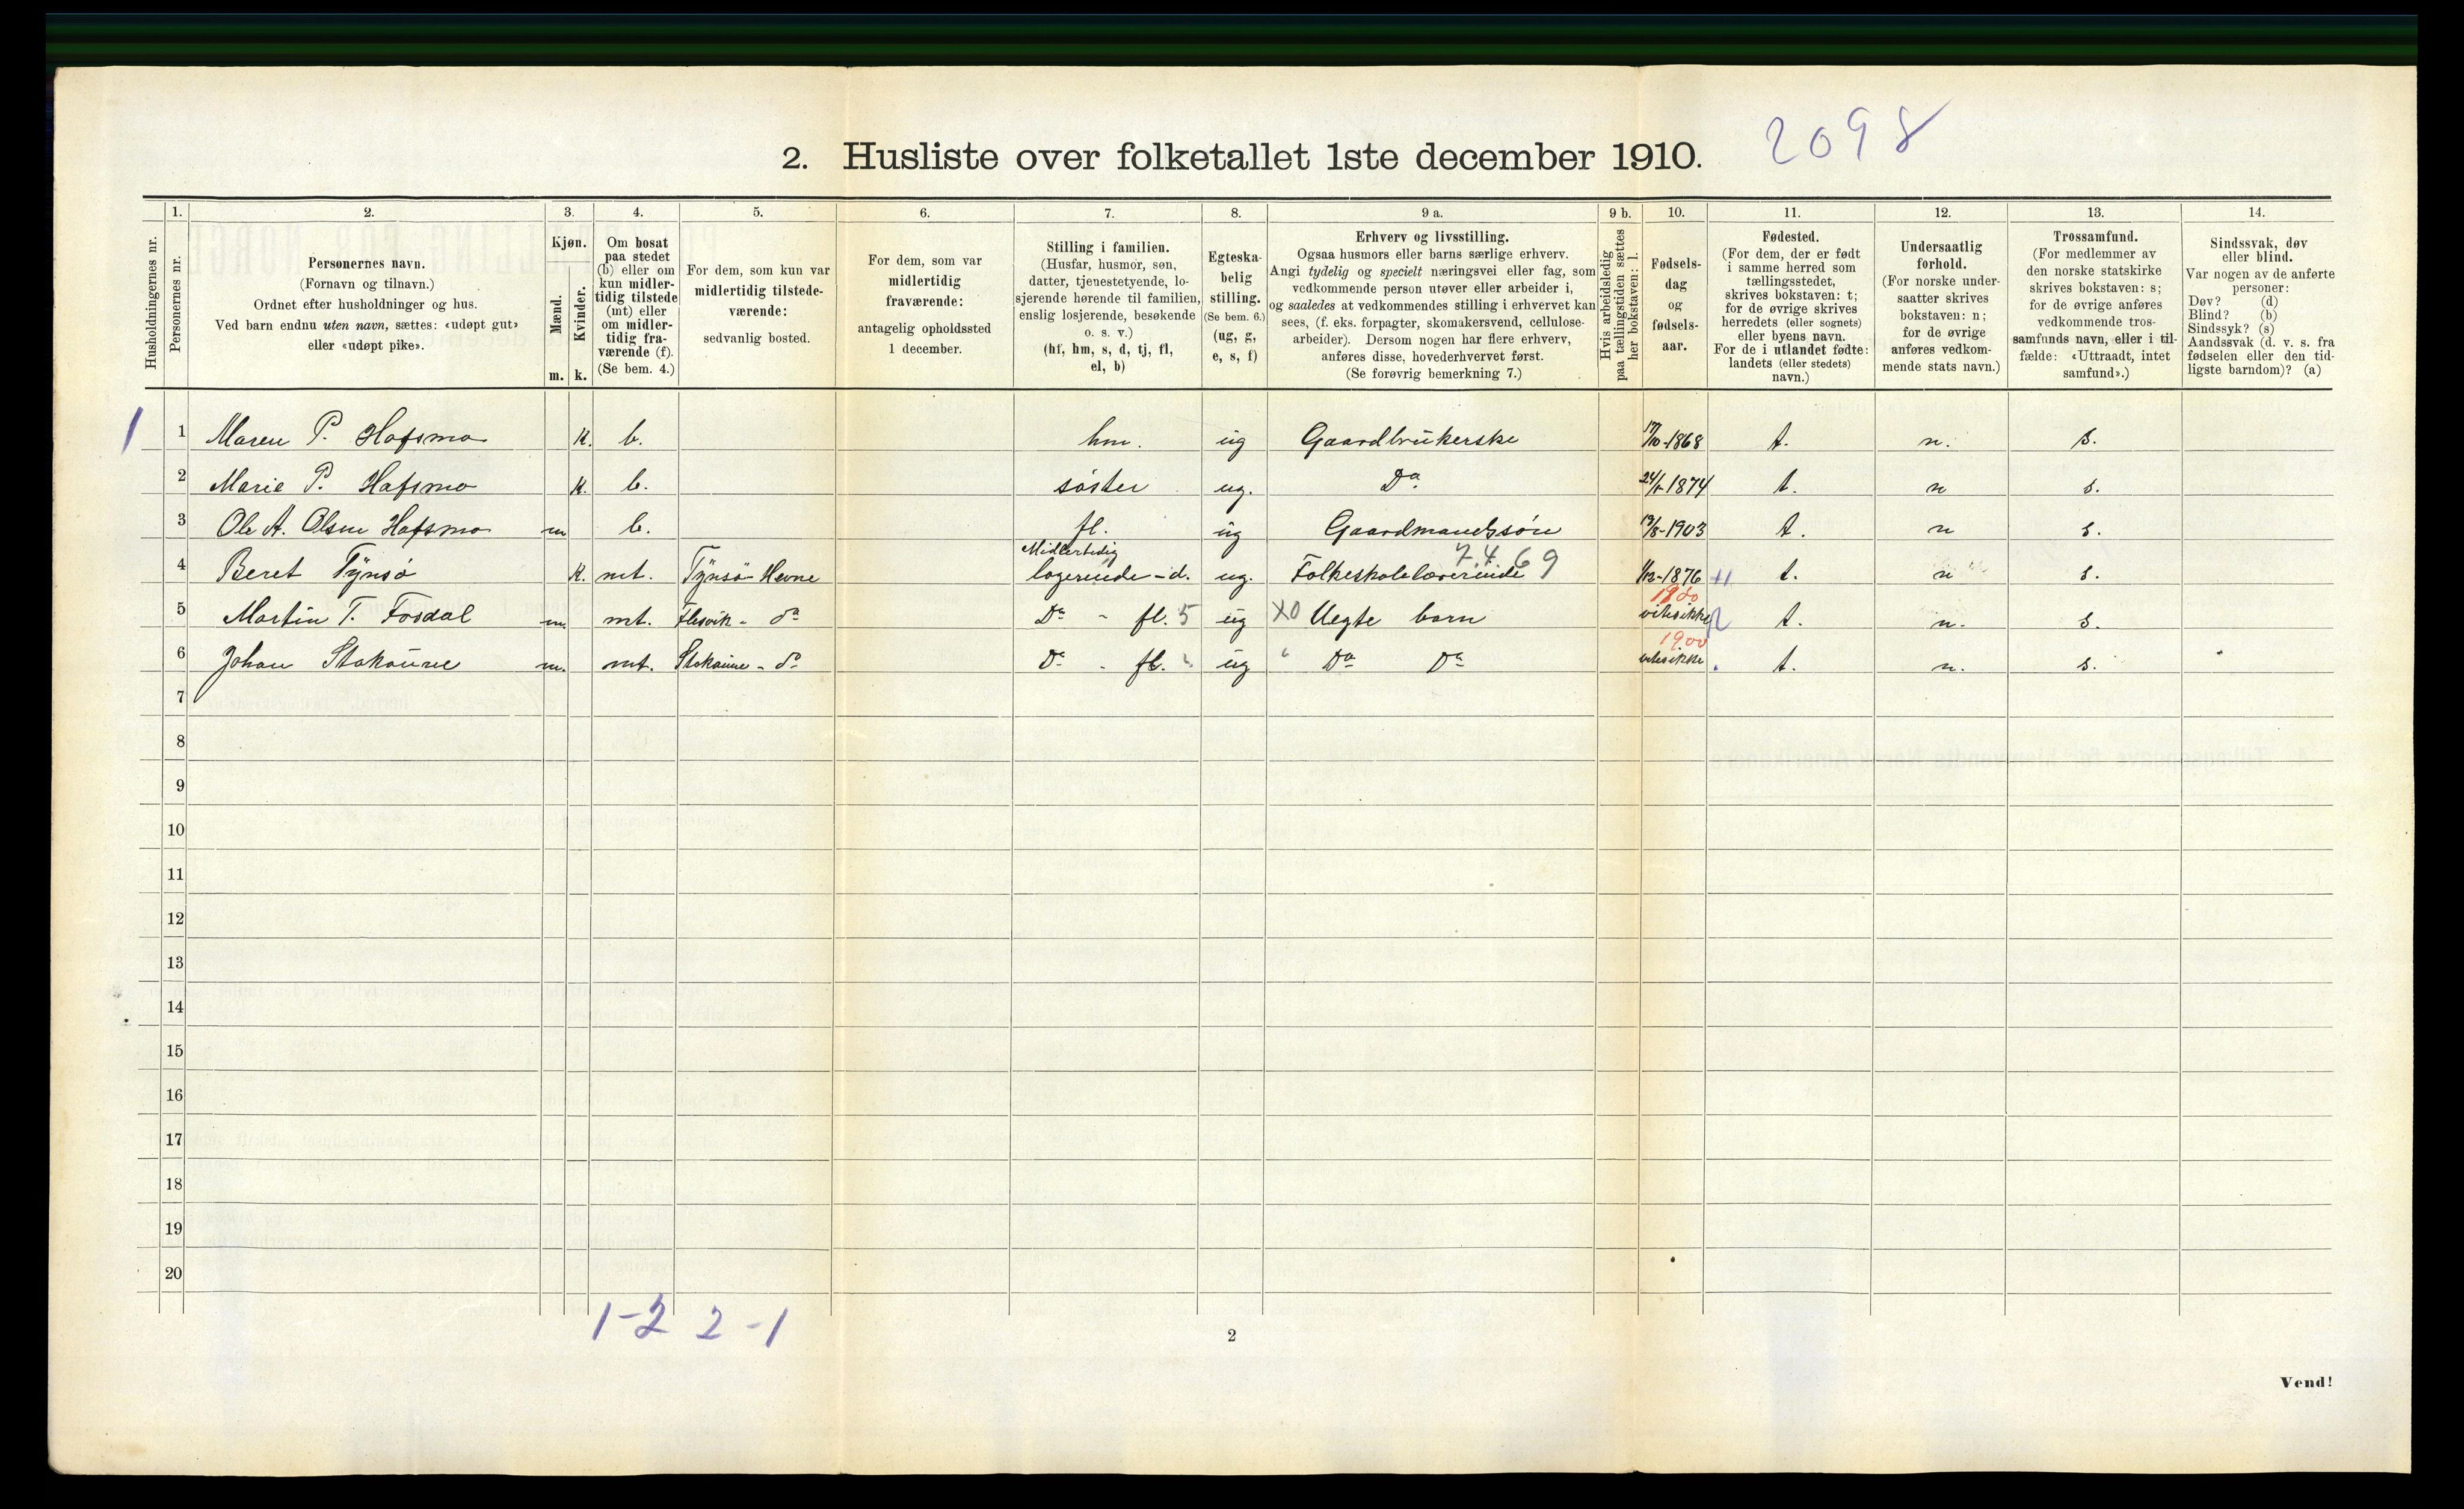 2098
2. Husliste over folketallet 1ste december 1910.
Husholdningernes nr.
1.
Personernes nr.
2.
Personernes navn.
(Fornavn og tilnavn.)
Ordnet efter husholdninger og hus.
Ved barn endnu uten navn, sættes: «udøpt gut»
eller «udøpt pike».
3.
Kjøn.
Mænd.
Kvinder.
m. k.
4.
Om bosat
paa stedet
(b) eller om
kun midler-
tidig tilstede
(mt) eller
om midler-
tidig fra-
værende (f).
(Se bem. 4.)
5.
For dem, som kun var
midlertidig tilstede-
værende:
sedvanlig bosted.
6.
For dem, som var
midlertidig
fraværende:
antagelig opholdssted
1 december.
7.
Stilling i familien.
(Husfar, husmor, søn,
datter, tjenestetyende, lo-
sjerende hørende til familien,
enslig losjerende, besøkende
o. s. v.)
(hf, hm, s, d, tj, fl,
el, b)
8.
Egteska-
belig
stilling.
(Se bem. 6.)
(ug, g,
e, s, f)
9 a.
Erhverv og livsstilling.
Ogsaa husmors eller barns særlige erhverv.
Angi tydelig og specielt næringsvei eller fag, som
vedkommende person utøver eller arbeider i,
og saaledes at vedkommendes stilling i erhvervet kan
sees, (f. eks. forpagter, skomakersvend, cellulose-
arbeider). Dersom nogen har flere erhverv,
anføres disse, hovederhvervet først.
(Se forøvrig bemerkning 7.)
9 b.
Hvis arbeidsledig
paa tællingstiden sættes
her bokstaven: l.
10.
Fødsels-
dag
og
fødsels-
aar.
11.
Fødested.
(For dem, der er født
i samme herred som
tællingsstedet,
skrives bokstaven: t;
for de øvrige skrives
herredets (eller sognets)
eller byens navn.
For de i utlandet fødte:
landets (eller stedets)
navn.)
12.
Undersaatlig
forhold.
(For norske under-
saatter skrives
bokstaven: n;
for de øvrige
anføres vedkom-
mende stats navn.)
13.
Trossamfund.
(For medlemmer av
den norske statskirke
skrives bokstaven: s;
for de øvrige anføres
vedkommende tros-
samfunds navn, eller i til-
fælde: «Uttraadt, intet
samfund».)
14.
Sindssvak, døv
eller blind.
Var nogen av de anførte
personer:
Døv? (d)
Blind? (b)
Sindssyk? (s)
Aandssvak (d. v. s. fra
fødselen eller den tid-
ligste barndom)? (a)
1 1 Maren P. Hafsmo K. b. hm. ug Gaardbrukerske 17/10-1868 t. n. s.
2 Marie P. Hafsmo K. b. søster ug. Do 1874 t. n s.
3 Ole A. Olsen Hafsmo m b. fl. ug Gaardmandssøn 19/8-1903 t. n s.
4 Beret Tynsø K. mt. Tynsø-Hevne Midlertidig logerende-d. ug. Folkeskolelærerinde 7.4.69 1/12-1876 t. n s.
5 Martin T. Fosdal m. mt. Flesvik - do Do - fl. 5 ug XO Uegte barn vites ikke t. n. s.
6 Johan Stokaune m. mt. Stokaune - do Do - fl. ug Do Do 1900 vites ikke t. n. s.
7
8
9
10
11
12
13
14
15
16
17
18
19
20
1-2 2-1
2
Vend!